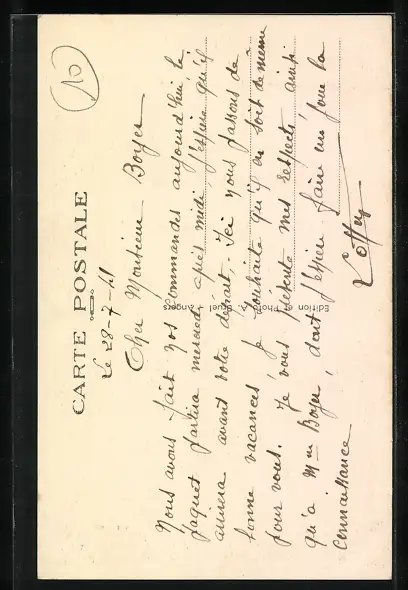 10
CARTE POSTALE
le 28-7-41
Cher Monsieur Boyer
Nous avons fait vos commandes aujourd'hui le
paquet partira mercredi après midi j'espère qu'il
arrivera avant votre départ. Ici nous passons de
bonne vacances je souhaite qu'il en soit de même
pour vous. Je vous présente mes respects ainsi
qu'à Mme Boyer, dont j'espère faire un jour la
connaissance
Edition et Photo A. Bruel - Angers